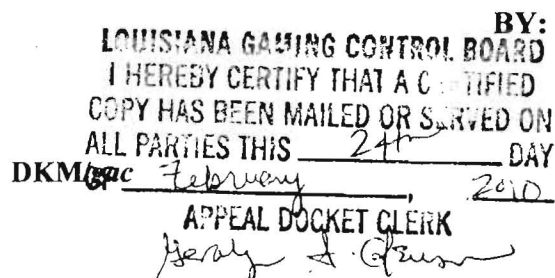 BY:
LOUISIANA GAMING CONTROL BOARD
I HEREBY CERTIFY THAT A C TIFIED
COPY HAS BEEN MAILED OR SERVED ON
ALL PARTIES THIS 24th DAY
DKM/gac February, 2010
APPEAL DOCKET CLERK